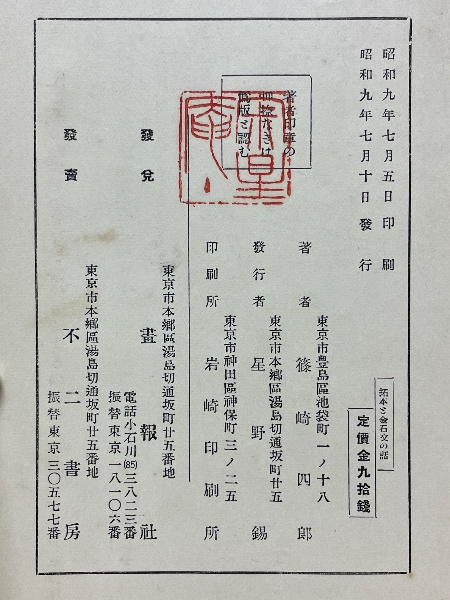 昭和九年七月五日印刷
昭和九年七月十日發行
拓本と金石文の話
定價金九拾錢
著者印章の
無きは
僞版と認む
東京市豊島區池袋町一ノ十八
著者 篠崎四郎
東京市本鄕區湯島切通坂町廿五
發行者 星野錫
東京市神田區神保町三ノ二五
印刷所 岩崎印刷所
發兌
東京市本鄕區湯島切通坂町廿五番地
畫報社
電話小石川(85)三八二三番
振替東京一八一〇六番
發賣
東京市本鄕區湯島切通坂町廿五番地
不二書房
振替東京三〇五七七番